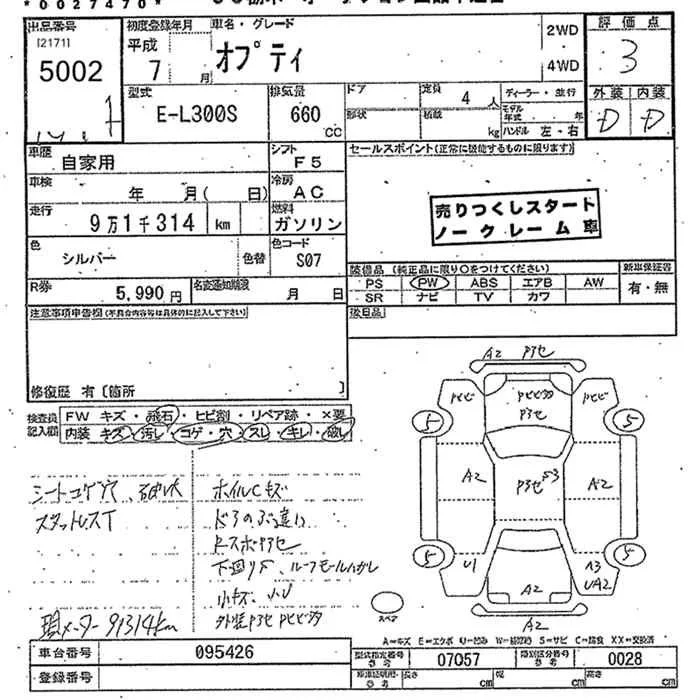 *0027470*
出品番号 初度登録年月 車名・グレード 2WD 評価点
[2171] 平成 オプティ 3
5002 7 月 4WD
型式 排気量 ドア 定員 ディーラー・並行 外装 内装
E-L300S 660 4 人 モデル年式 年 D D
CC 形状 積載 kg ハンドル 左・右
車歴 シフト セールスポイント(正常に機能するものに限ります)
自家用 F5
車検 冷房
年 月( 日) AC
走行 燃料 売りつくしスタート
9万1千314 km ガソリン ノークレーム車
色 色コード
シルバー 色替 S07 装備品 (純正品に限り○をつけてください) 新車保証書
R券 名変通知期限 PS PW ABS エアB AW 有・無
5,990円 月 日 SR ナビ TV カワ
注意事項申告欄(不具合内容等は具体的に記入して下さい) 後日品
修復歴 有〔箇所 〕
A2 P3セ
検査員 FW キズ・飛石・ヒビ割・リペア跡・×要
記入欄 内装 キズ・汚レ・コゲ・穴・スレ・キレ・破レ
Pヒビ Pヒビ多 Pヒビ
P3セ
5 5
シートコゲ穴、破レ大 ホイルCキズ
A2 P3セ A2
スタットレスT ドアのぶ違い
P3セ
下回りS、ルーフモールハガレ
5 5
U1 A3
UA2
A2
小キズ、小U
スペア A2
現メーター91314km 外装P3セ Pヒビ多
A=キズ E=エクボ U=凹み W=補修跡 S=サビ C=腐食 XX=交換済
車台番号 095426 型式指定番号 07057 類別区分番号 0028
参考 参考
登録番号 長さ cm 幅 cm 高さ cm
参考